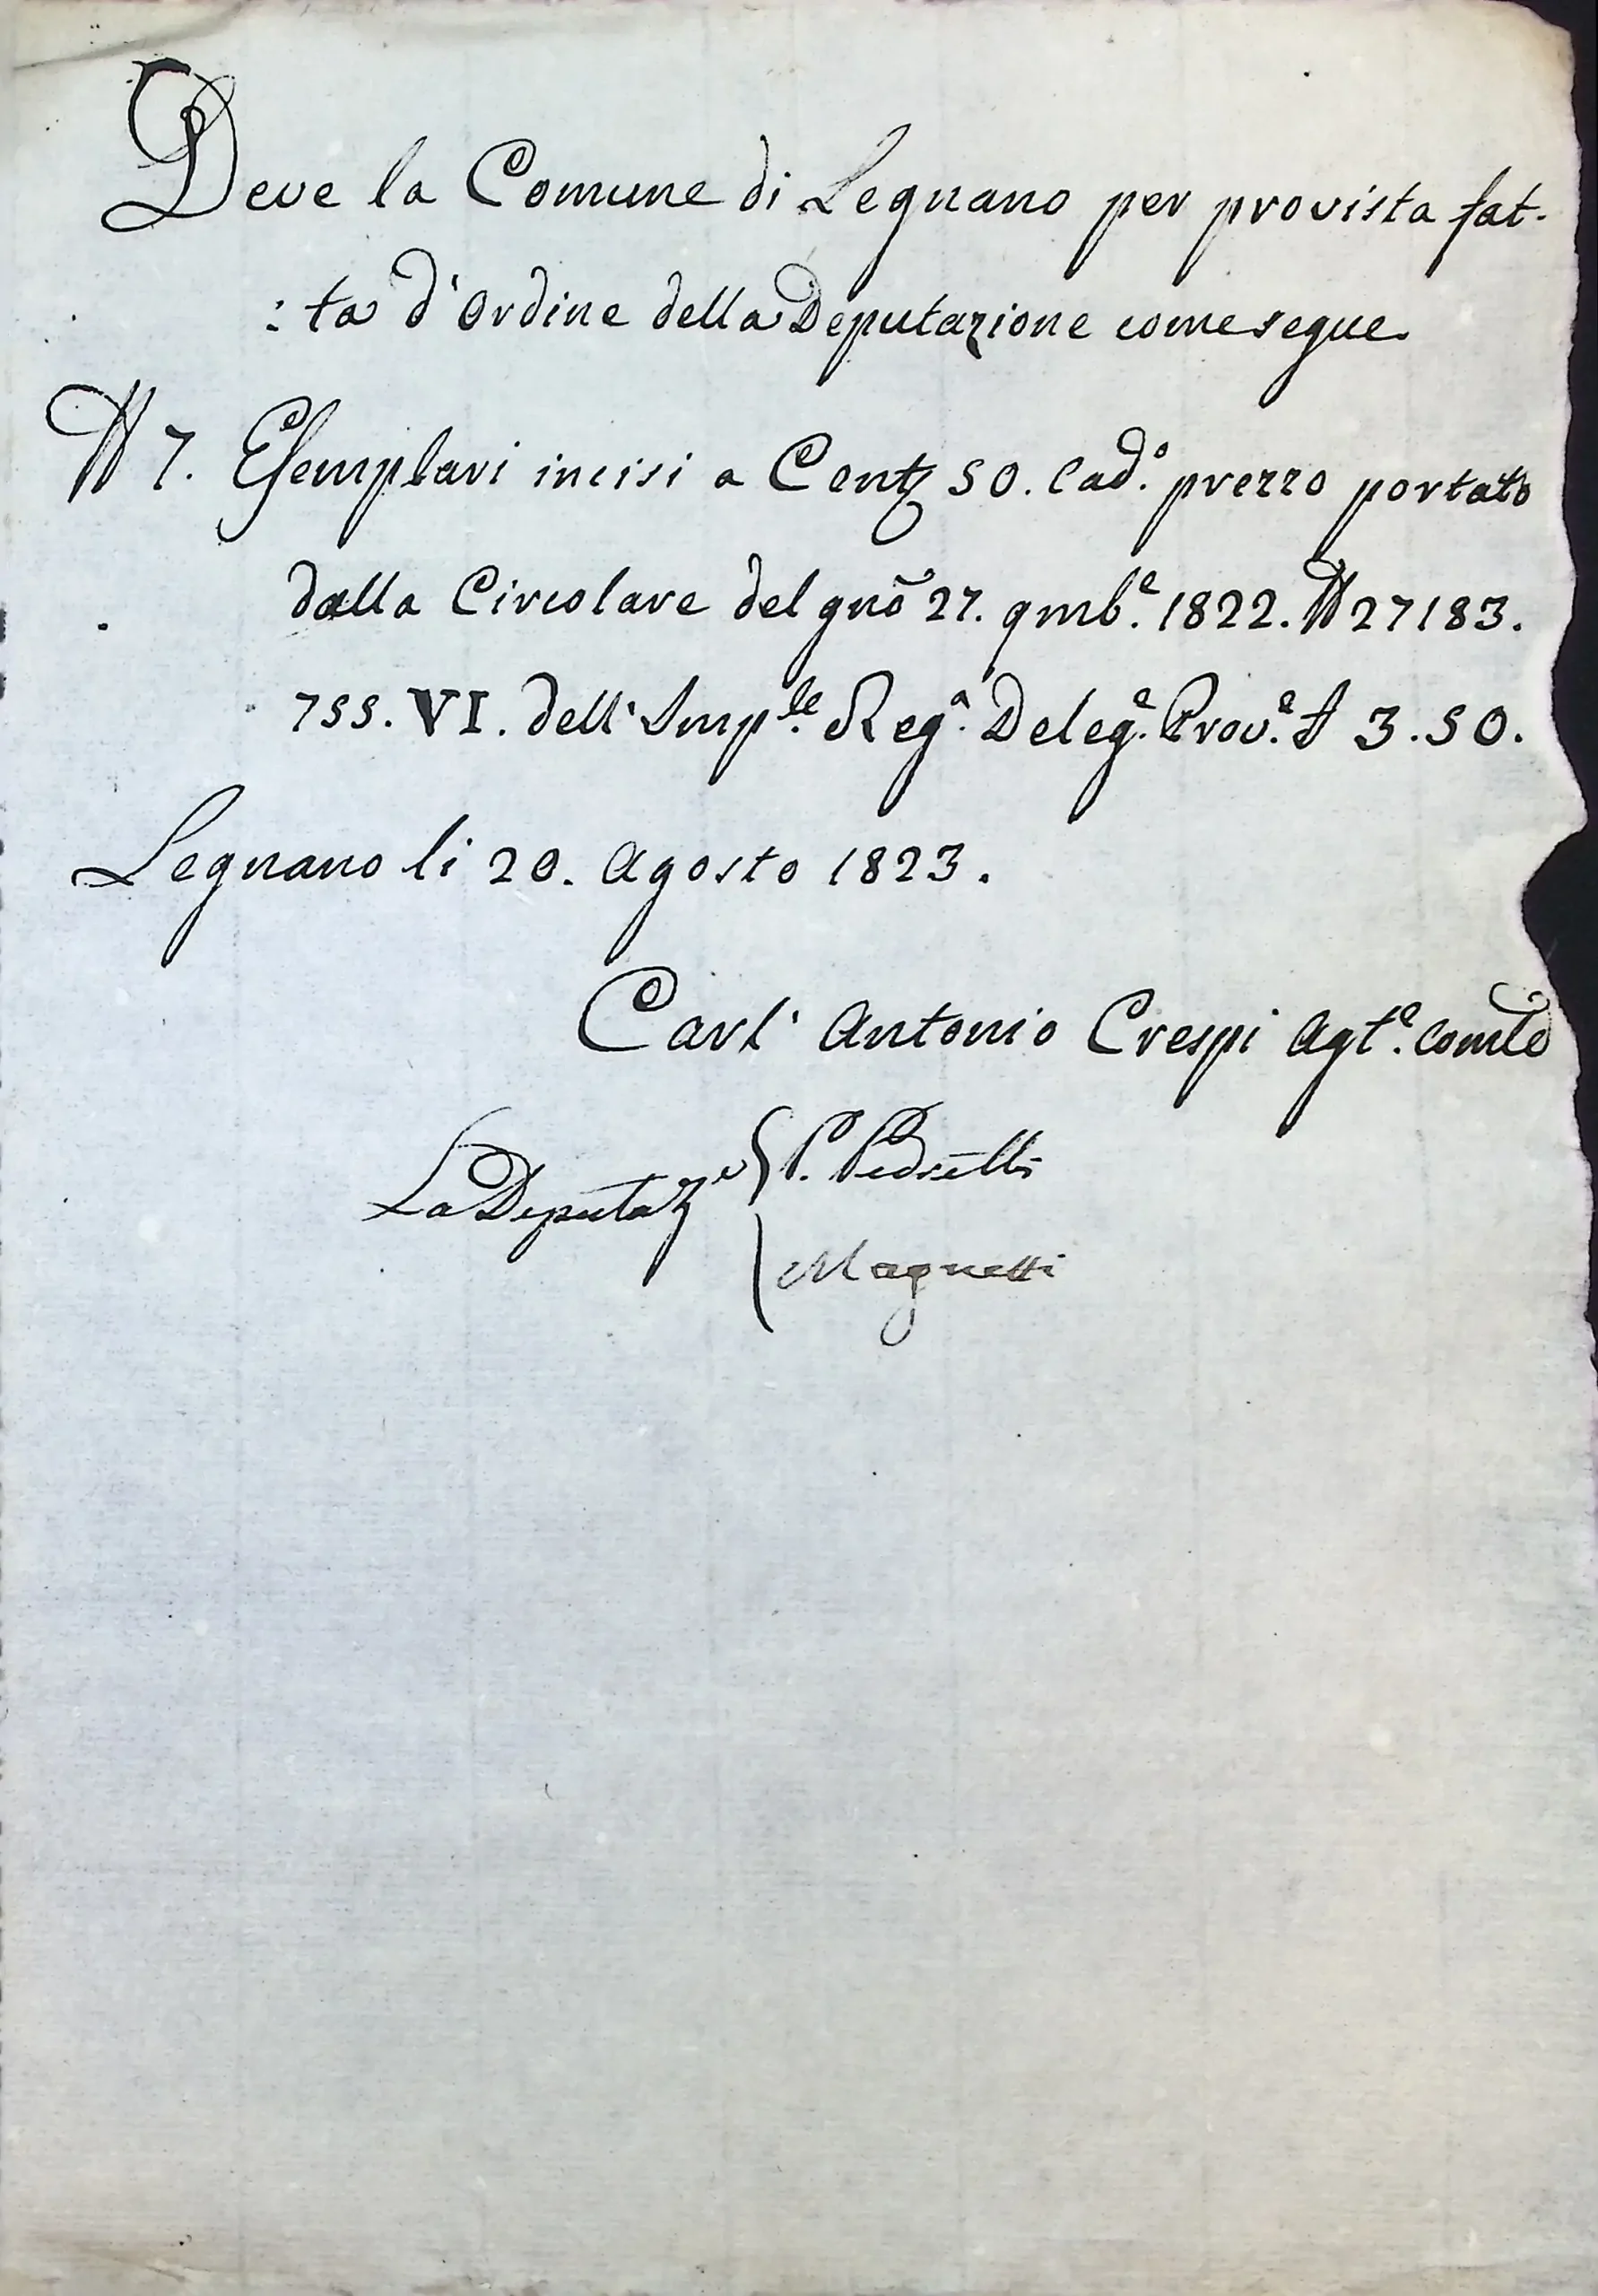 Deve la Comune di Legnano per provista fat-
:ta d'Ordine della Deputazione come segue.
N 7. Esemplari incisi a Cent 50. Cad.o prezzo portato
dalla Circolare del gno 27. 9mb.e 1822. N 27183.
755. VI. dell' Imp.le Reg.a Deleg.e Prov.e £ 3.50.
Legnano li 20. Agosto 1823.
Carl' Antonio Crespi Agt.e Com.le
La Deputaz.e P. Pedretti
Magnetti